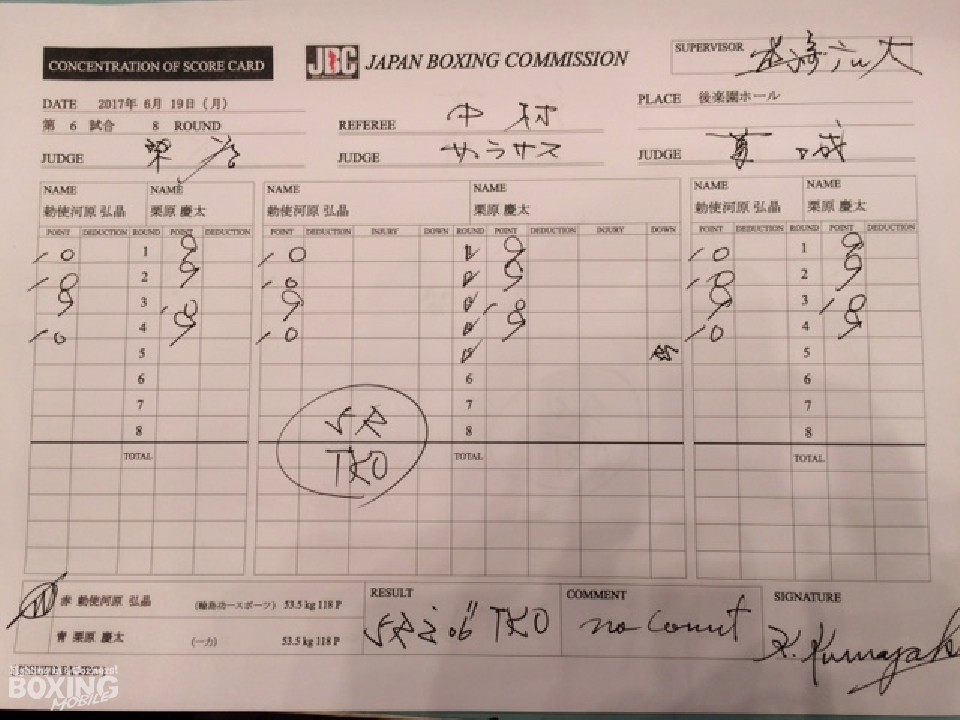 CONCENTRATION OF SCORE CARD
JBC JAPAN BOXING COMMISSION
SUPERVISOR
DATE 2017年 6月 19日 (月)
PLACE 後楽園ホール
第 6 試合 8 ROUND
REFEREE 中村
JUDGE
JUDGE サラサス
JUDGE
NAME NAME NAME NAME NAME NAME
勅使河原 弘晶 栗原 慶太 勅使河原 弘晶 栗原 慶太 勅使河原 弘晶 栗原 慶太
POINT DEDUCTION ROUND POINT DEDUCTION POINT DEDUCTION INJURY DOWN ROUND POINT DEDUCTION INJURY DOWN POINT DEDUCTION ROUND POINT DEDUCTION
10 1 9 10 1 9 10 1 9
10 2 9 10 2 9 10 2 9
9 3 10 9 3 10 9 3 10
10 4 9 10 4 9 10 4 9
5 5 5
6 6 6
7 7 7
8 8 8
5R
TKO
TOTAL TOTAL TOTAL
赤 勅使河原 弘晶 (輪島功一スポーツ) 53.5 kg 118 P
青 栗原 慶太 (一力) 53.5 kg 118 P
RESULT
TKO
COMMENT
no count
SIGNATURE
BOXING
MOBILE